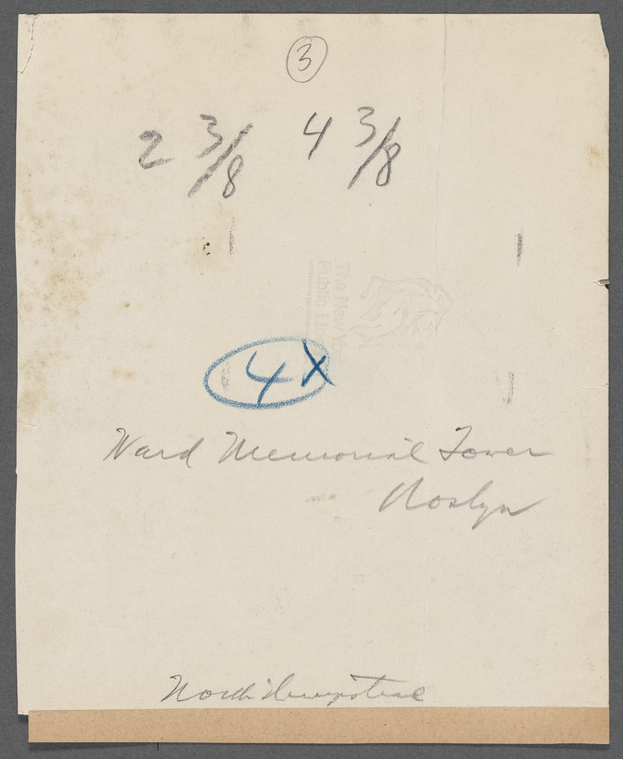 3
2 3/8 4 3/8
The New York
Public Library
4X
Ward Memorial Tower
Roslyn
North Hempstead